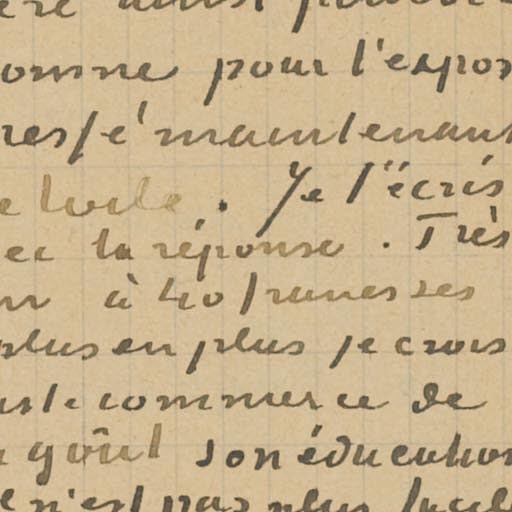 ainsi
omme pour l'expos
resté maintenant
toile. Je t'écris
ec ta réponse. Très
à 40 francs ses
plus en plus je crois
le commerce de
goût son éducation
n'est pas plus facil